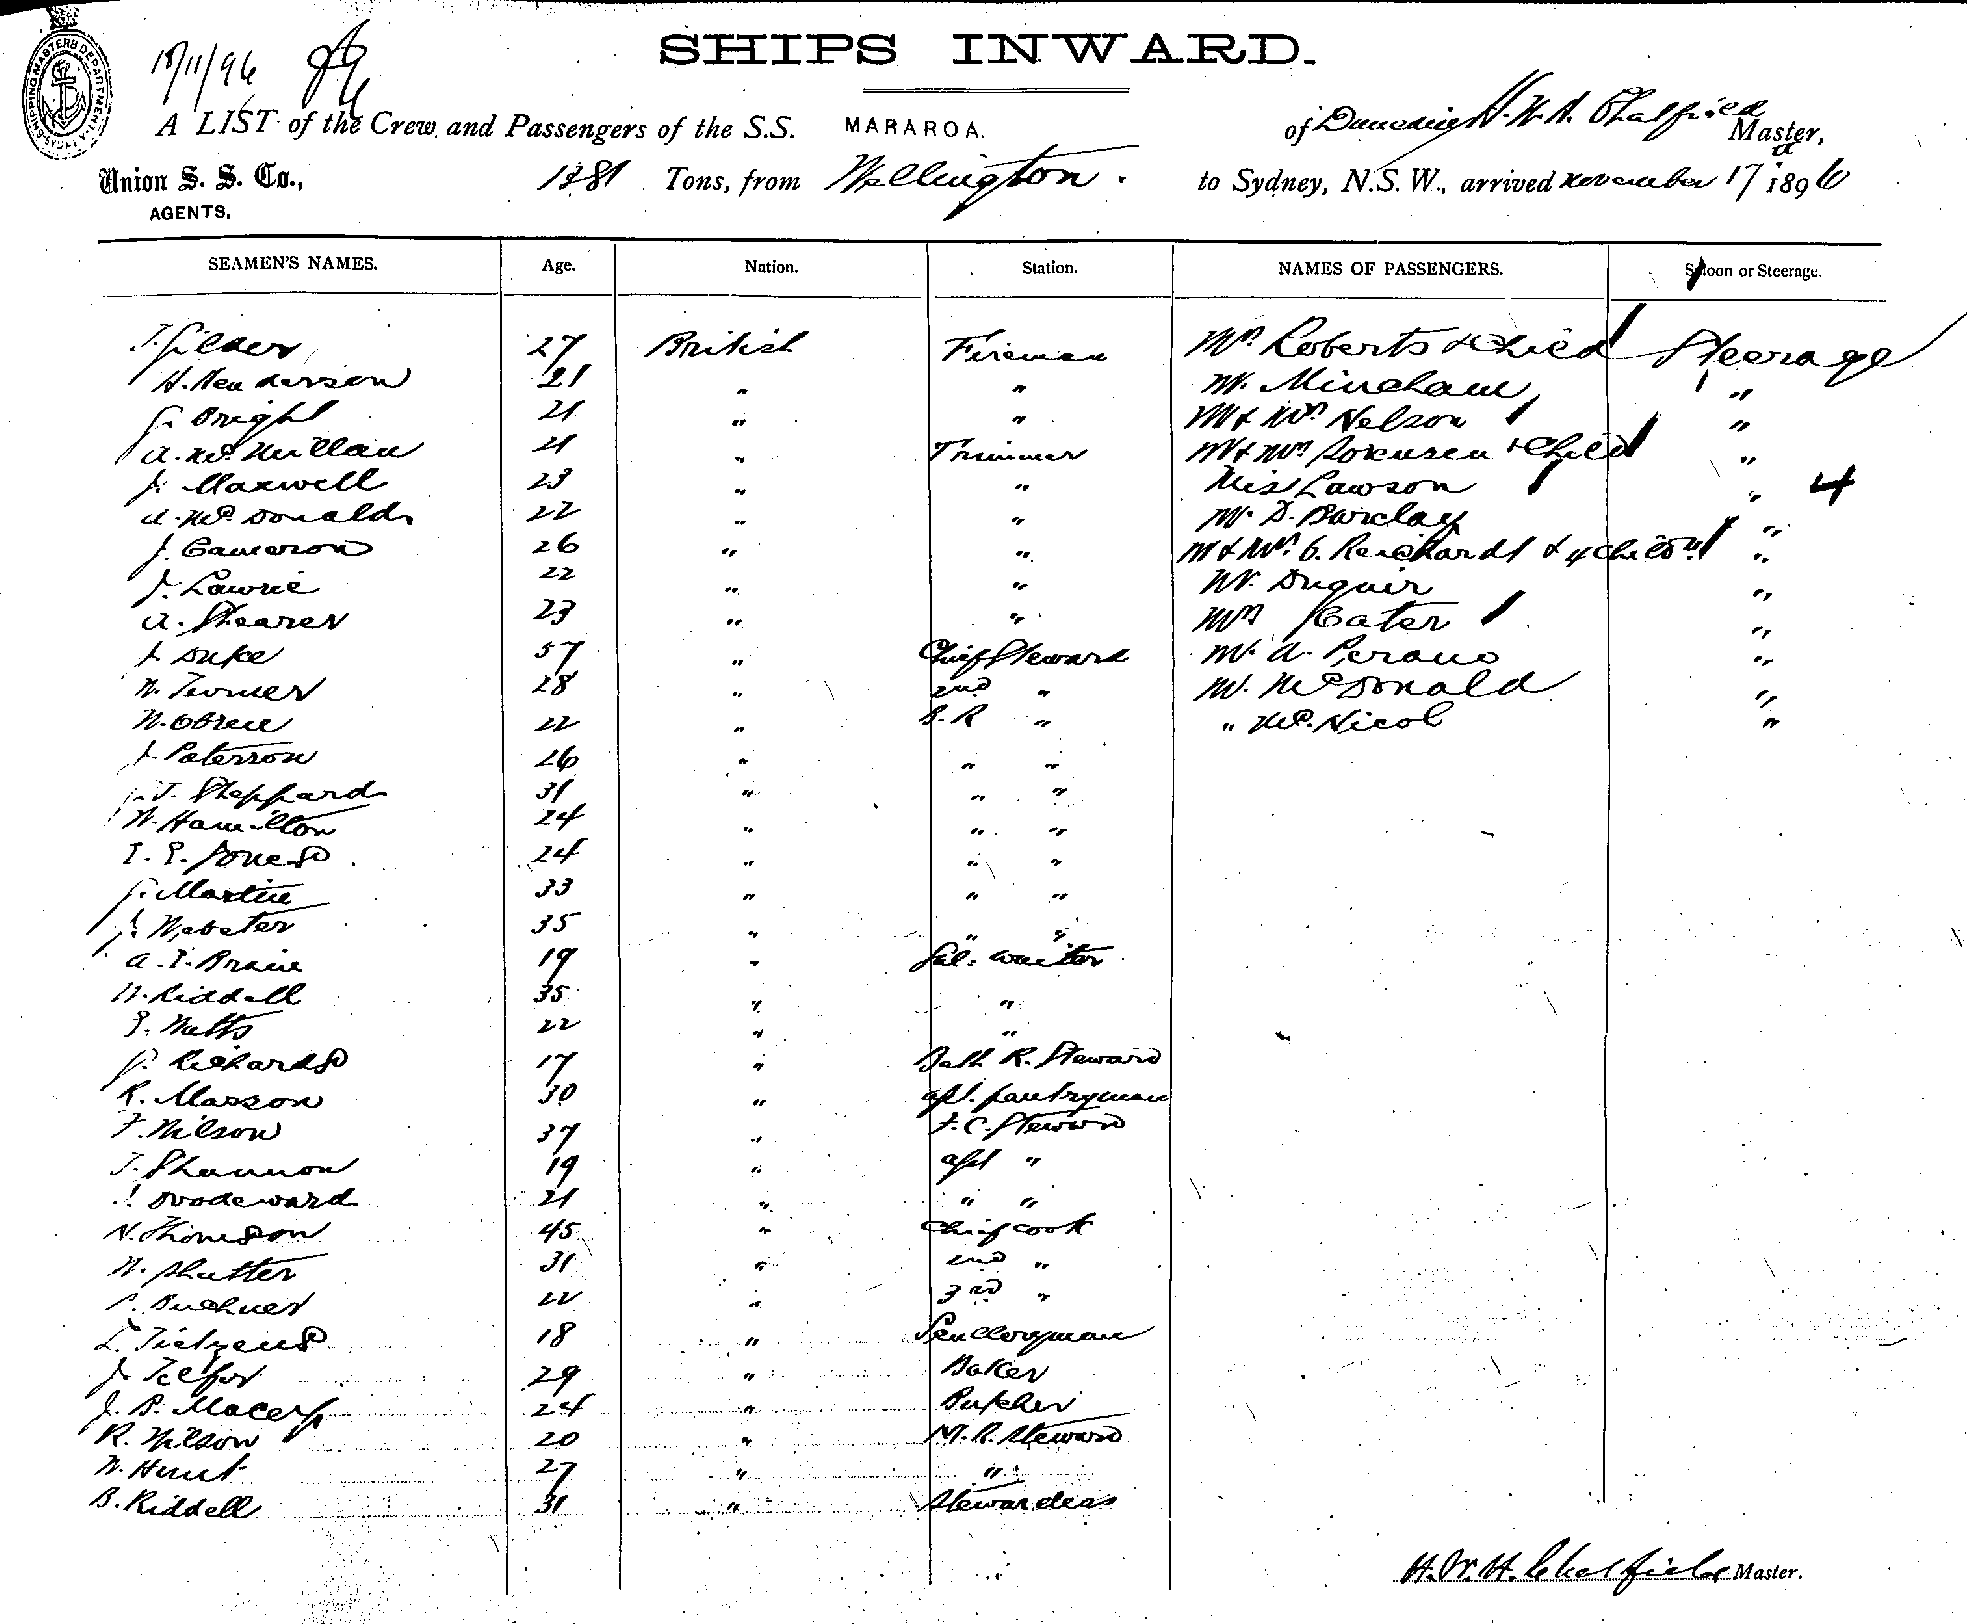 SHIPPING MASTERS DEPARTMENT SYDNEY
18/11/96
SHIPS INWARD.
A LIST of the Crew and Passengers of the S.S. MARAROA. of Dunedin H. W. H. Chatfield Master,
Union S. S. Co., AGENTS. 1381 Tons, from Wellington. to Sydney, N.S.W., arrived November 17 1896
SEAMEN'S NAMES. Age. Nation. Station. NAMES OF PASSENGERS. Saloon or Steerage.
27 British Fireman Mrs. Roberts & Child Steerage
H. Henderson 21 " " Mr. Mincham "
G. Bright 21 " " Mr & Mrs Nelson "
A. McMillan 21 " Trimmer Mr & Mrs Sorensen & Child "
J. Maxwell 23 " " Miss Lawson " 4
A. McDonald 22 " " Mr. D. Barclay "
J. Cameron 26 " " Mr & Mrs. Reichardt & 4 Childn "
J. Lawrie 22 " " Mr. Duguir "
A. Shearer 23 " " Mrs Cater "
J. Duke 57 " Chief Steward Mr. A. Perano "
W. Turner 28 " 2nd " Mr. McDonald "
W. OBrien 22 " B. R " " McNicol "
J. Paterson 26 " " "
J. Sheppard 31 " " "
W. Hamilton 24 " " "
Jones 24 " " "
G. Martin 33 " " "
J. Webster 35 " " "
A. E. Braine 19 " Sal. Waiter
W. Riddell 35 " "
E. Watts 22 " "
G. Richards 17 " Bath R. Steward
R. Masson 30 " asst. pantryman
F. Wilson 37 " F. C. Steward
T. Shannon 19 " asst "
J. Woodward 21 " " "
W. Thomson 45 " Chief Cook
W. Shutter 31 " 2nd "
Buchner 22 " 3rd "
L. Tietjens 18 " Sculleryman
J. Telfor 29 " Baker
J. B. Macey 24 " Butcher
R. Wilson 20 " M. R. Steward
W. Hunt 27 " "
B. Riddell 31 " Stewardess
H. W. H. Chatfield Master.